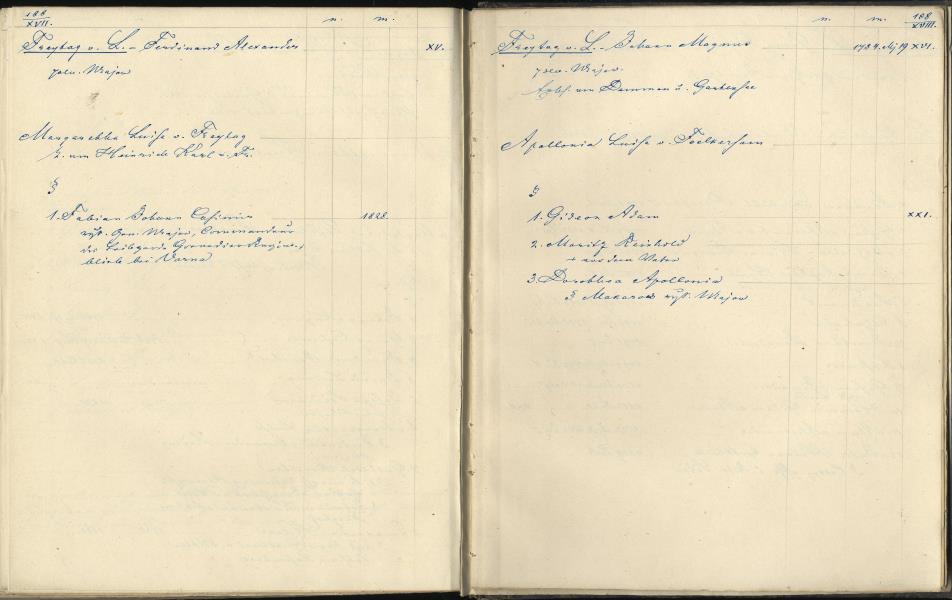 188
XVII.
n. m.
Freytag v. L. - Ferdinand Alexander XV.
poln. Major
Margaretha Luise v. Freytag
T. von Heinrich Karl v. Fr.
1. Fabian Johann Casimir 1828.
russ. Gen. Major, Commandeur
des Leibgarde Grenadier Regim.,
blieb bei Varna
188
XVIII.
n. m.
Freytag v. L. - Johann Magnus 1784. XVI.
poln. Major.
Erbh. von Dammen u. Gartensee
Apollonia Luise v. Foelkersam
1. Gideon Adam XXI.
2. Moritz Reinhold
+ vor dem Vater
3. Dorothea Apollonia
Makarow russ. Major